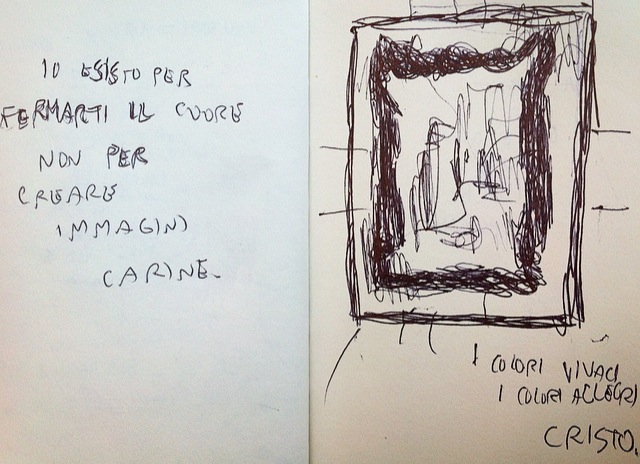 IO ESISTO PER
FERMARTI IL CUORE
NON PER
CREARE
IMMAGINI
CARINE.
I COLORI VIVACI
I COLORI ALLEGRI
CRISTO.